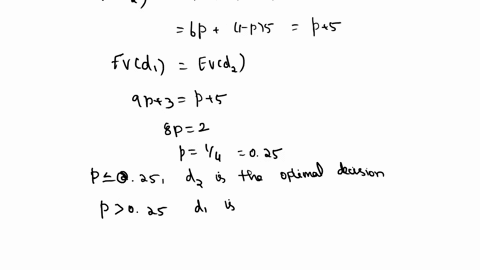 = 6p + (1-p)5 = p+5
EV(d₁) = EV(d₂)
9p+3 = p+5
8p = 2
p = 1/4 = 0.25
p ≤ 0.25, d₂ is the optimal decision
p > 0.25 d₁ is